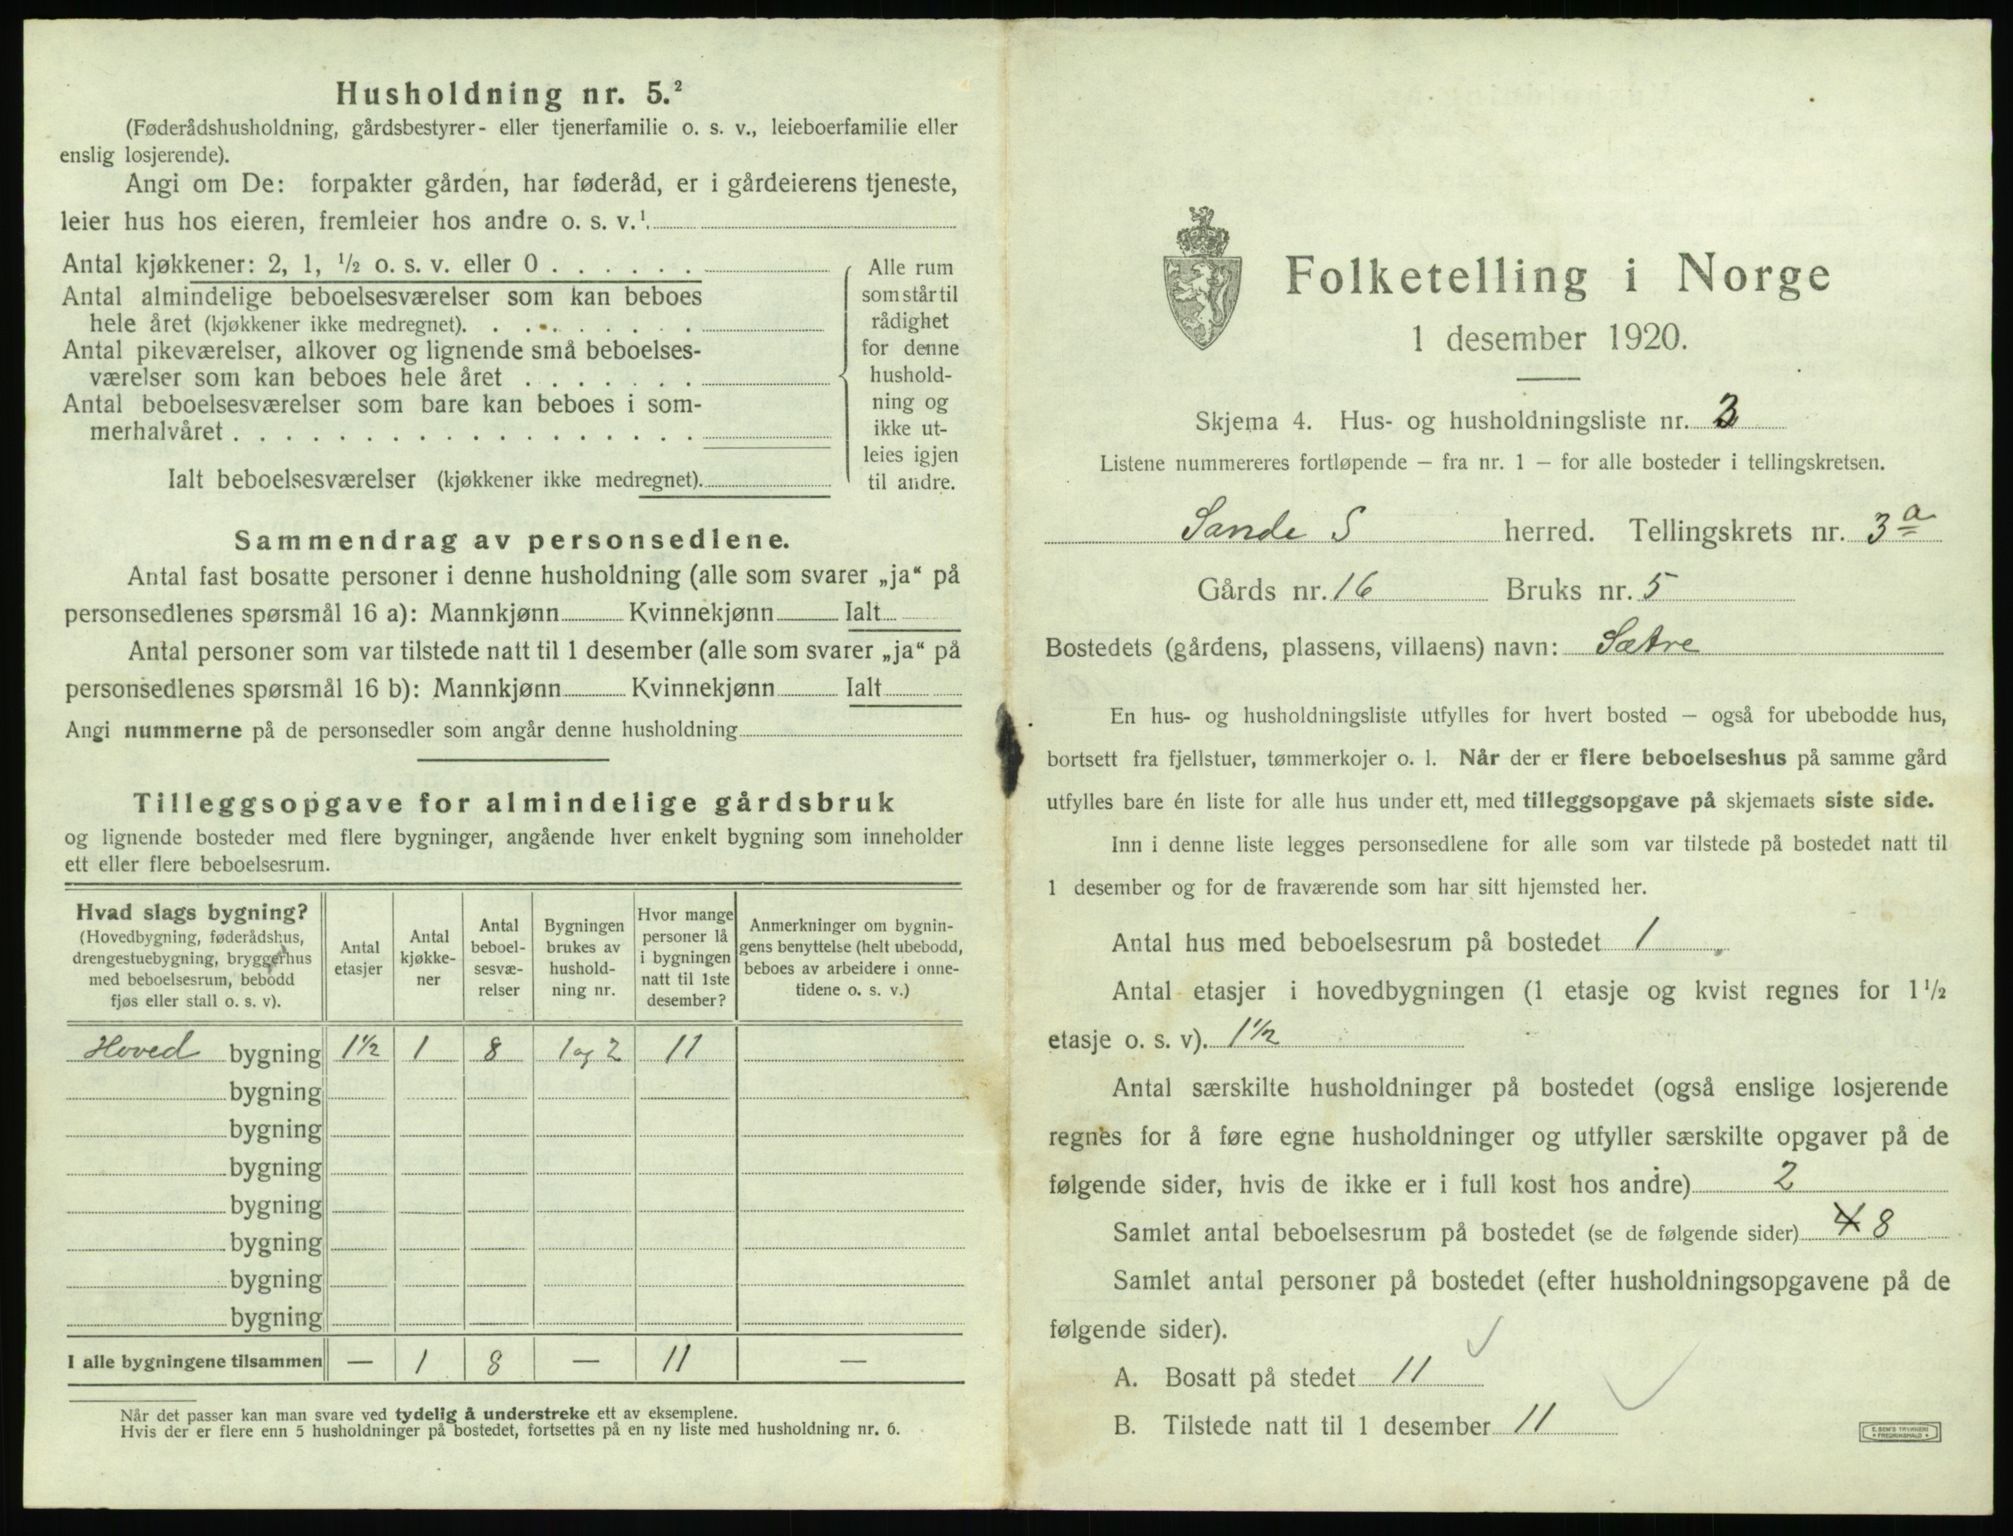 Husholdning nr. 5.²
(Føderådshusholdning, gårdsbestyrer- eller tjenerfamilie o. s. v., leieboerfamilie eller
enslig losjerende).
Angi om De: forpakter gården, har føderåd, er i gårdeierens tjeneste,
leier hus hos eieren, fremleier hos andre o. s. v.¹
Antal kjøkkener: 2, 1, ½ o. s. v. eller 0
Antal almindelige beboelsesværelser som kan beboes
hele året (kjøkkener ikke medregnet).
Antal pikeværelser, alkover og lignende små beboelses-
værelser som kan beboes hele året
Antal beboelsesværelser som bare kan beboes i som-
merhalvåret
Ialt beboelsesværelser (kjøkkener ikke medregnet).
Alle rum
som står til
rådighet
for denne
hushold-
ning og
ikke ut-
leies igjen
til andre.
Sammendrag av personsedlene.
Antal fast bosatte personer i denne husholdning (alle som svarer „ja“ på
personsedlenes spørsmål 16 a): Mannkjønn Kvinnekjønn Ialt
Antal personer som var tilstede natt til 1 desember (alle som svarer „ja“ på
personsedlenes spørsmål 16 b): Mannkjønn Kvinnekjønn Ialt
Angi nummerne på de personsedler som angår denne husholdning
Tilleggsopgave for almindelige gårdsbruk
og lignende bosteder med flere bygninger, angående hver enkelt bygning som inneholder
ett eller flere beboelsesrum.
Hvad slags bygning?
(Hovedbygning, føderådshus,
drengestuebygning, bryggerhus
med beboelsesrum, bebodd
fjøs eller stall o. s. v).
Antal
etasjer
Antal
kjøkke-
ner
Antal
beboel-
sesvæ-
relser
Bygningen
brukes av
hushold-
ning nr.
Hvor mange
personer lå
i bygningen
natt til 1ste
desember?
Anmerkninger om bygnin-
gens benyttelse (helt ubebodd,
beboes av arbeidere i onne-
tidene o. s. v.)
Hoved bygning 1½ 1 8 1 og 2 11
bygning
bygning
bygning
bygning
bygning
bygning
bygning
I alle bygningene tilsammen — 1 8 — 11 —
Når det passer kan man svare ved tydelig å understreke ett av eksemplene.
Hvis der er flere enn 5 husholdninger på bostedet, fortsettes på en ny liste med husholdning nr. 6.
Folketelling i Norge
1 desember 1920.
Skjema 4. Hus- og husholdningsliste nr.
Listene nummereres fortløpende – fra nr. 1 – for alle bosteder i tellingskretsen.
Sande S herred. Tellingskrets nr. 3 a
Gårds nr. 16 Bruks nr. 5
Bostedets (gårdens, plassens, villaens) navn: Sætre
En hus- og husholdningsliste utfylles for hvert bosted – også for ubebodde hus,
bortsett fra fjellstuer, tømmerkojer o. l. Når der er flere beboelseshus på samme gård
utfylles bare én liste for alle hus under ett, med tilleggsopgave på skjemaets siste side.
Inn i denne liste legges personsedlene for alle som var tilstede på bostedet natt til
1 desember og for de fraværende som har sitt hjemsted her.
Antal hus med beboelsesrum på bostedet 1
Antal etasjer i hovedbygningen (1 etasje og kvist regnes for 1½
etasje o. s. v). 1½
Antal særskilte husholdninger på bostedet (også enslige losjerende
regnes for å føre egne husholdninger og utfyller særskilte opgaver på de
følgende sider, hvis de ikke er i full kost hos andre) 2
Samlet antal beboelsesrum på bostedet (se de følgende sider) 4 8
Samlet antal personer på bostedet (efter husholdningsopgavene på de
følgende sider).
A. Bosatt på stedet 11
B. Tilstede natt til 1 desember 11